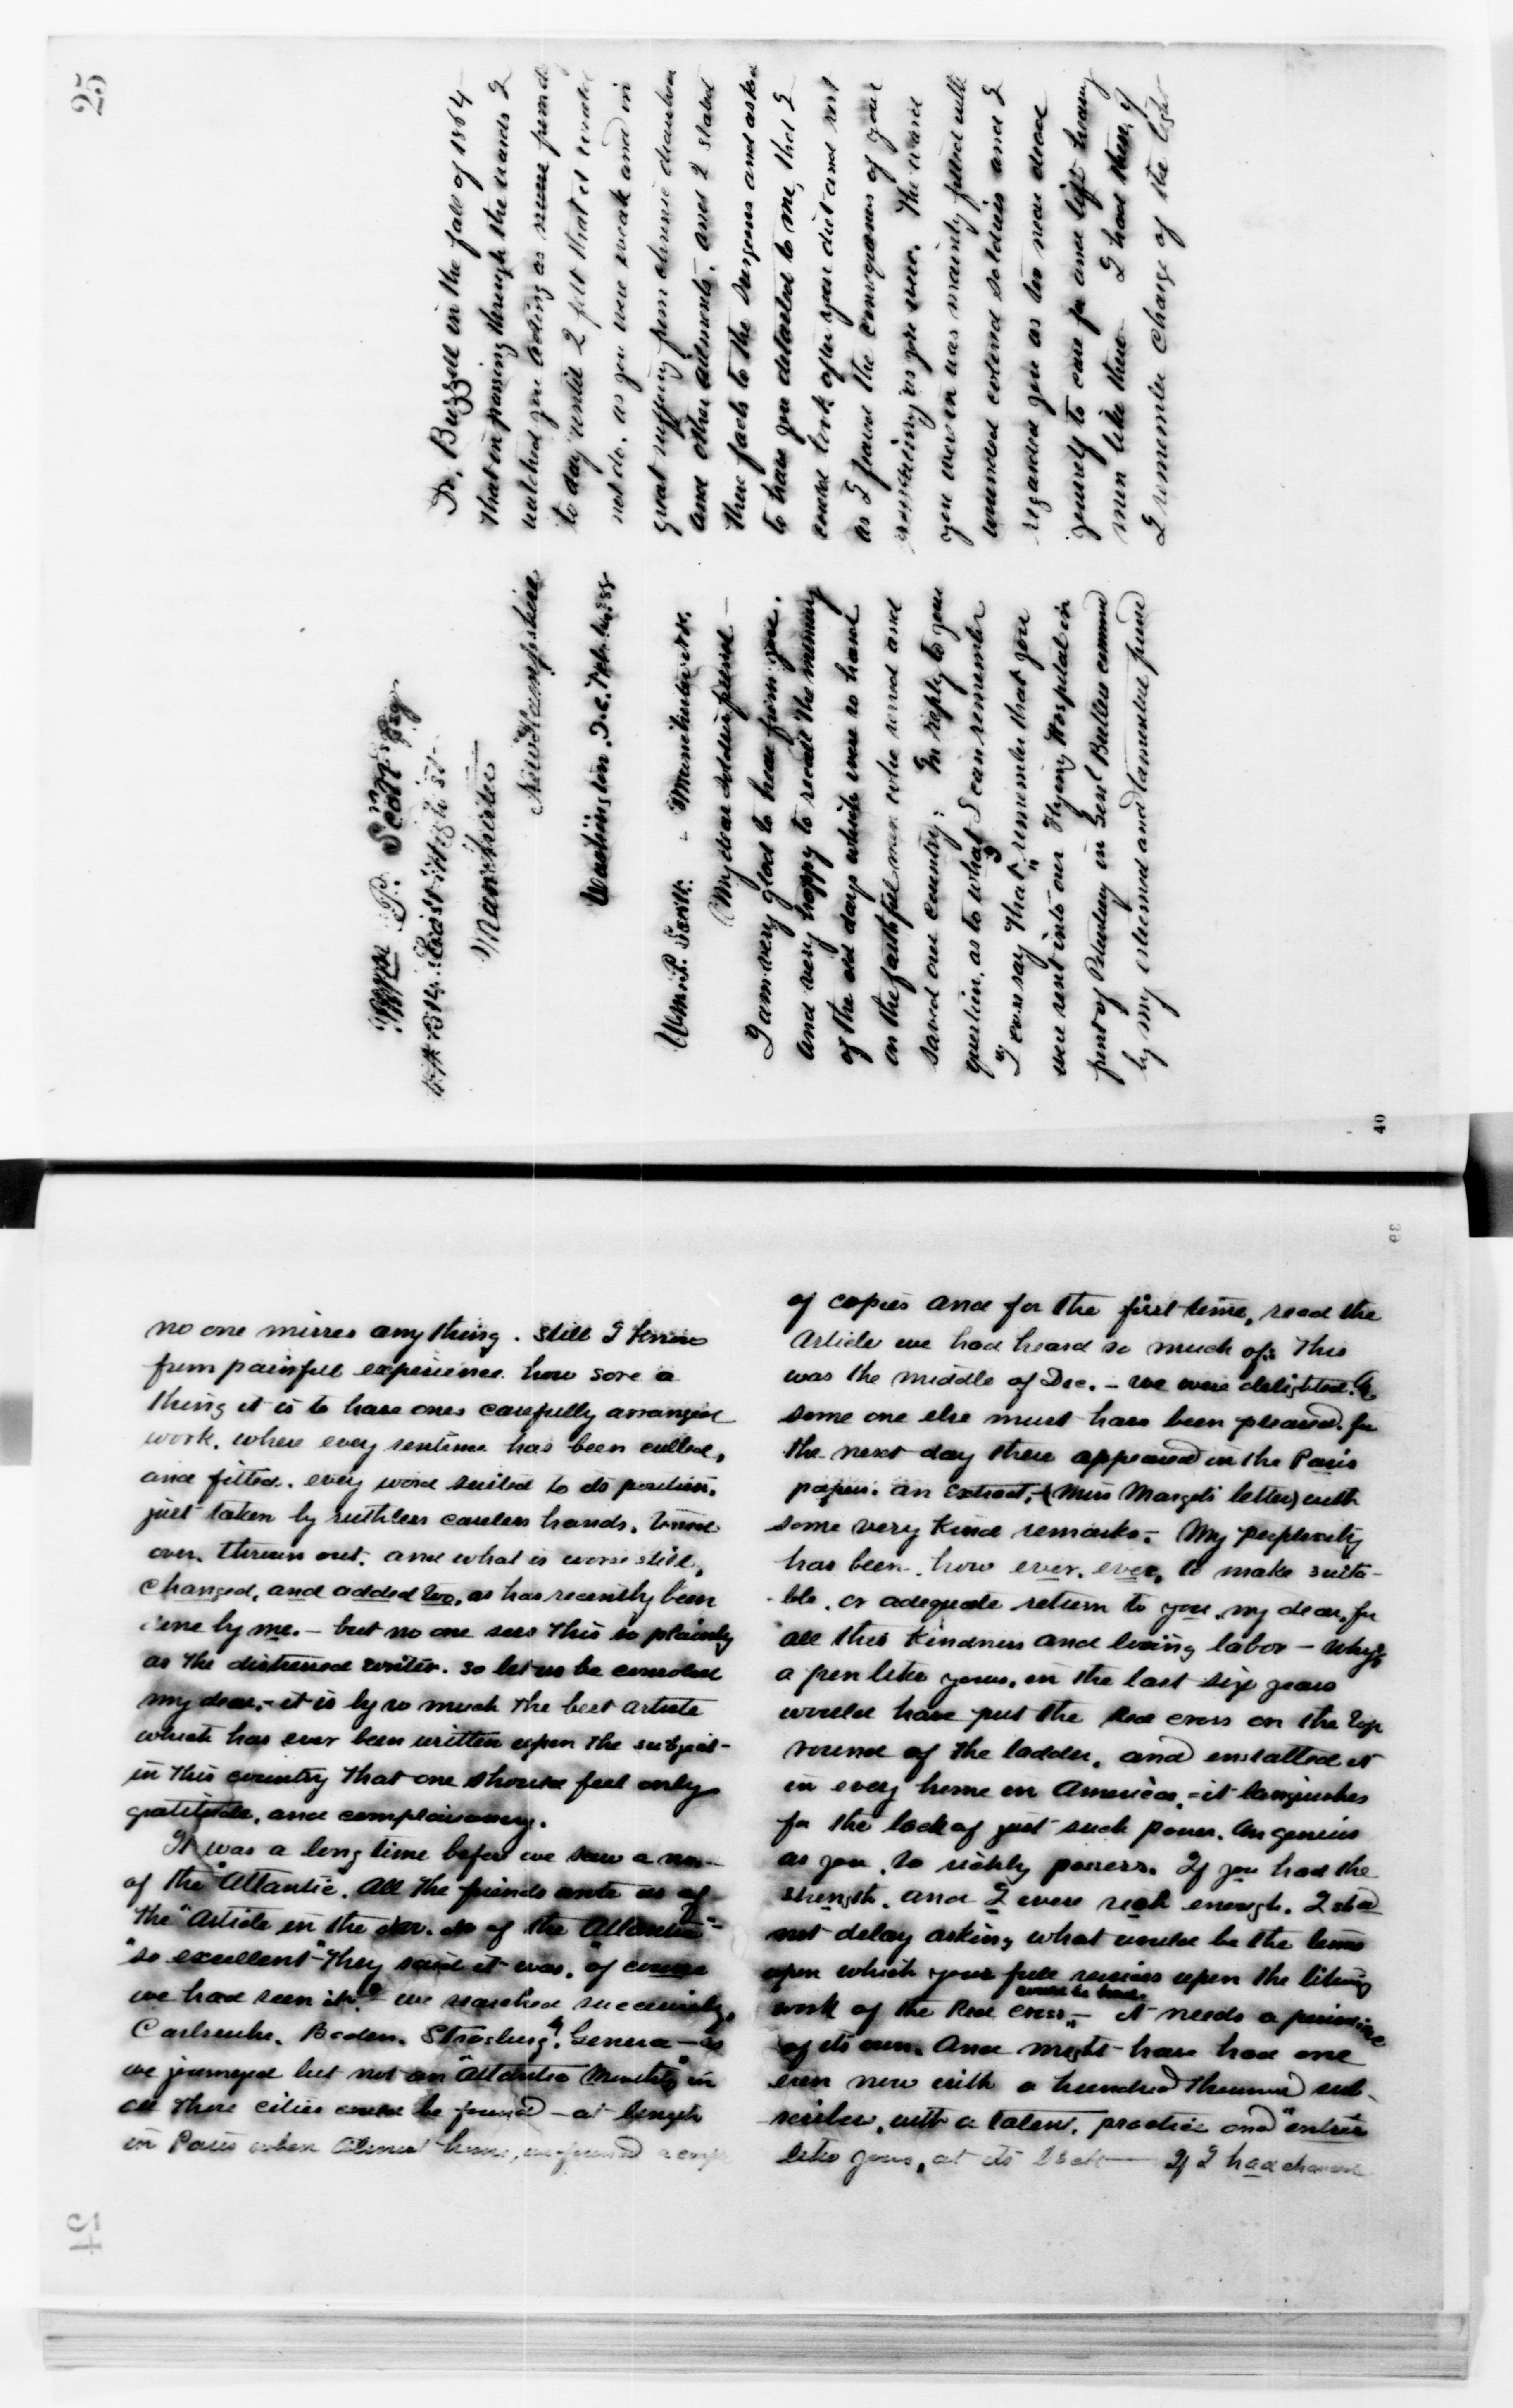 25
Wm P. Scott Esq
Manchester
New Hampshire
Washington, D.C.
Wm. P. Scott. - Manchester N.H.
My dear soldier friend -
I am very glad to hear from you.
and very happy to recall the memory
of the old days which were so hard
on the faithful men who served and
saved our country: In reply to your
question, as to what I can remember
I can say that, "I remember that you
were sent into our Flying Hospital in
front of Petersburg in Genl Butlers command
by my esteemed and lamented friend
Dr. Buzzell in the fall of 1864
that in passing through the wards I
watched you acting as nurse from day
to day until I felt that it would
not do, as you were weak and in
great suffering from chronic diarrhea
and other ailments, and I stated
these facts to the surgeons and asked
to have you detailed to me, that I
could look after your diet and rest
as I found the comrades of your
you were. The ward
you were in was mainly filled with
wounded colored soldiers and I
regarded you as too near dead
yourself to care for and lift heavy
men like them - I had them, &
I remember charge of the light
40
39
no one misses any thing. Still I know
from painful experience how sore a
thing it is to have ones carefully arranged
work, where every sentence has been culled,
and fitted, every word suited to its position,
just taken by ruthless careless hands, turned
over, thrown out, and what is worse still,
changed, and added too, as has recently been
done by me. - but no one sees this so plainly
as the distressed writer. so let us be consoled
my dear, - it is by so much the best article
which has ever been written upon the subject -
in this country that one should feel only
gratitude, and complaisancy.
It was a long time before we saw a no -
of the "Atlantic. All the friends wrote us of
the "Article in the of the Atlantic" -
"so excellent" they said it was, "of course
we had seen it?" we searched successively,
Carlsruhe, Baden, Strasburg, & Geneva - as
we journeyed but not an "Atlantic Monthly" in
all those cities could be found - at length
in Paris when almost home, we found a couple
of copies and for the first time, read the
article we had heard so much of: This
was the middle of Dec. - we were delighted. &
some one else must have been pleased. for
the next day there appeared in the Paris
papers. an extract, - (Miss Margots letter) with
some very kind remarks - My perplexity
has been, how ever, ever, to make suita -
- ble, or adequate return to you, my dear, for
all this kindness and loving labor - Why,
a pen like yours, in the last six years
would have put the Red cross on the top
round of the ladder, and installed it
in every home in America, - it languishes
for the lack of just such power. An genius
as you, so richly possess. If you had the
strength, and I were rich enough, I shd
not delay asking what would be the terms
upon which your full services upon the literary
work of the Red cross could be had - it needs a periodical
of its own. And might have had one
even now with a hundred thousand sub -
scribers, with a talent, practice and "entrée
like yours, at its back - If I had chosen
24